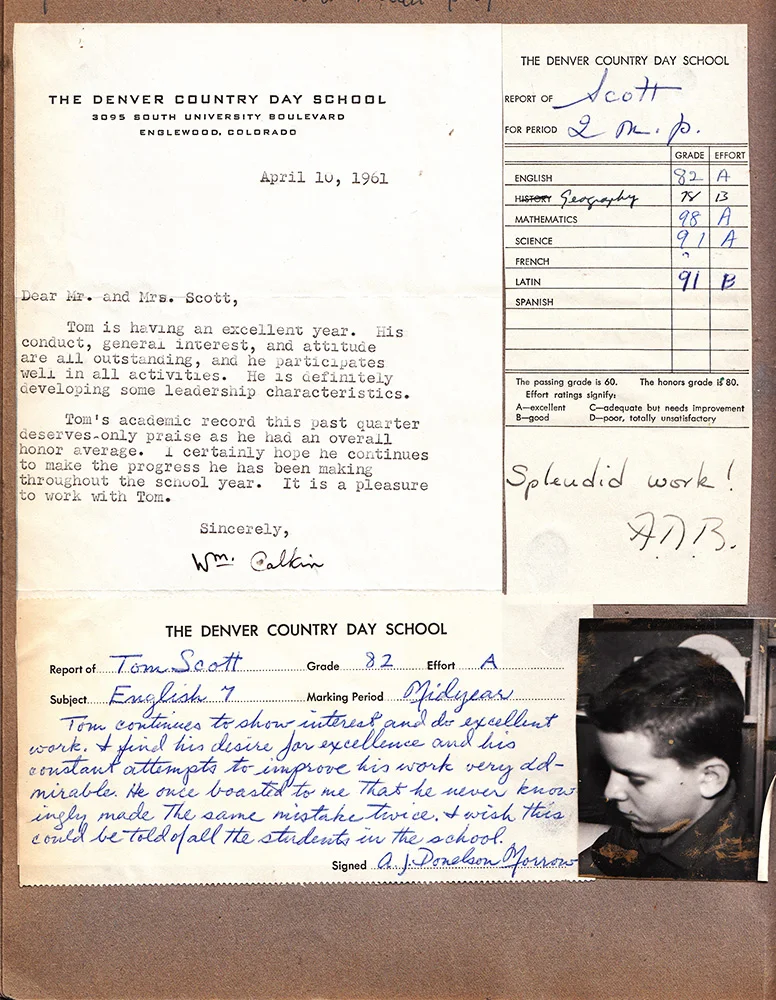 THE DENVER COUNTRY DAY SCHOOL
3095 SOUTH UNIVERSITY BOULEVARD
ENGLEWOOD, COLORADO
April 10, 1961
Dear Mr. and Mrs. Scott,
Tom is having an excellent year. His
conduct, general interest, and attitude
are all outstanding, and he participates
well in all activities. He is definitely
developing some leadership characteristics.
Tom's academic record this past quarter
deserves only praise as he had an overall
honor average. I certainly hope he continues
to make the progress he has been making
throughout the school year. It is a pleasure
to work with Tom.
Sincerely,
Wm. Calkin
THE DENVER COUNTRY DAY SCHOOL
REPORT OF Scott
FOR PERIOD 2 m. p.
GRADE EFFORT
ENGLISH 82 A
HISTORY Geography 78 B
MATHEMATICS 98 A
SCIENCE 91 A
FRENCH
LATIN 91 B
SPANISH
The passing grade is 60. The honors grade is 80.
Effort ratings signify:
A—excellent C—adequate but needs improvement
B—good D—poor, totally unsatisfactory
Splendid work!
A.D.B.
THE DENVER COUNTRY DAY SCHOOL
Report of Tom Scott Grade 82 Effort A
Subject English 7 Marking Period Midyear
Tom continues to show interest and do excellent
work. I find his desire for excellence and his
constant attempts to improve his work very ad-
mirable. He once boasted to me that he never know-
ingly made the same mistake twice. I wish this
could be told of all the students in the school.
Signed A. J. Donelson Morrow